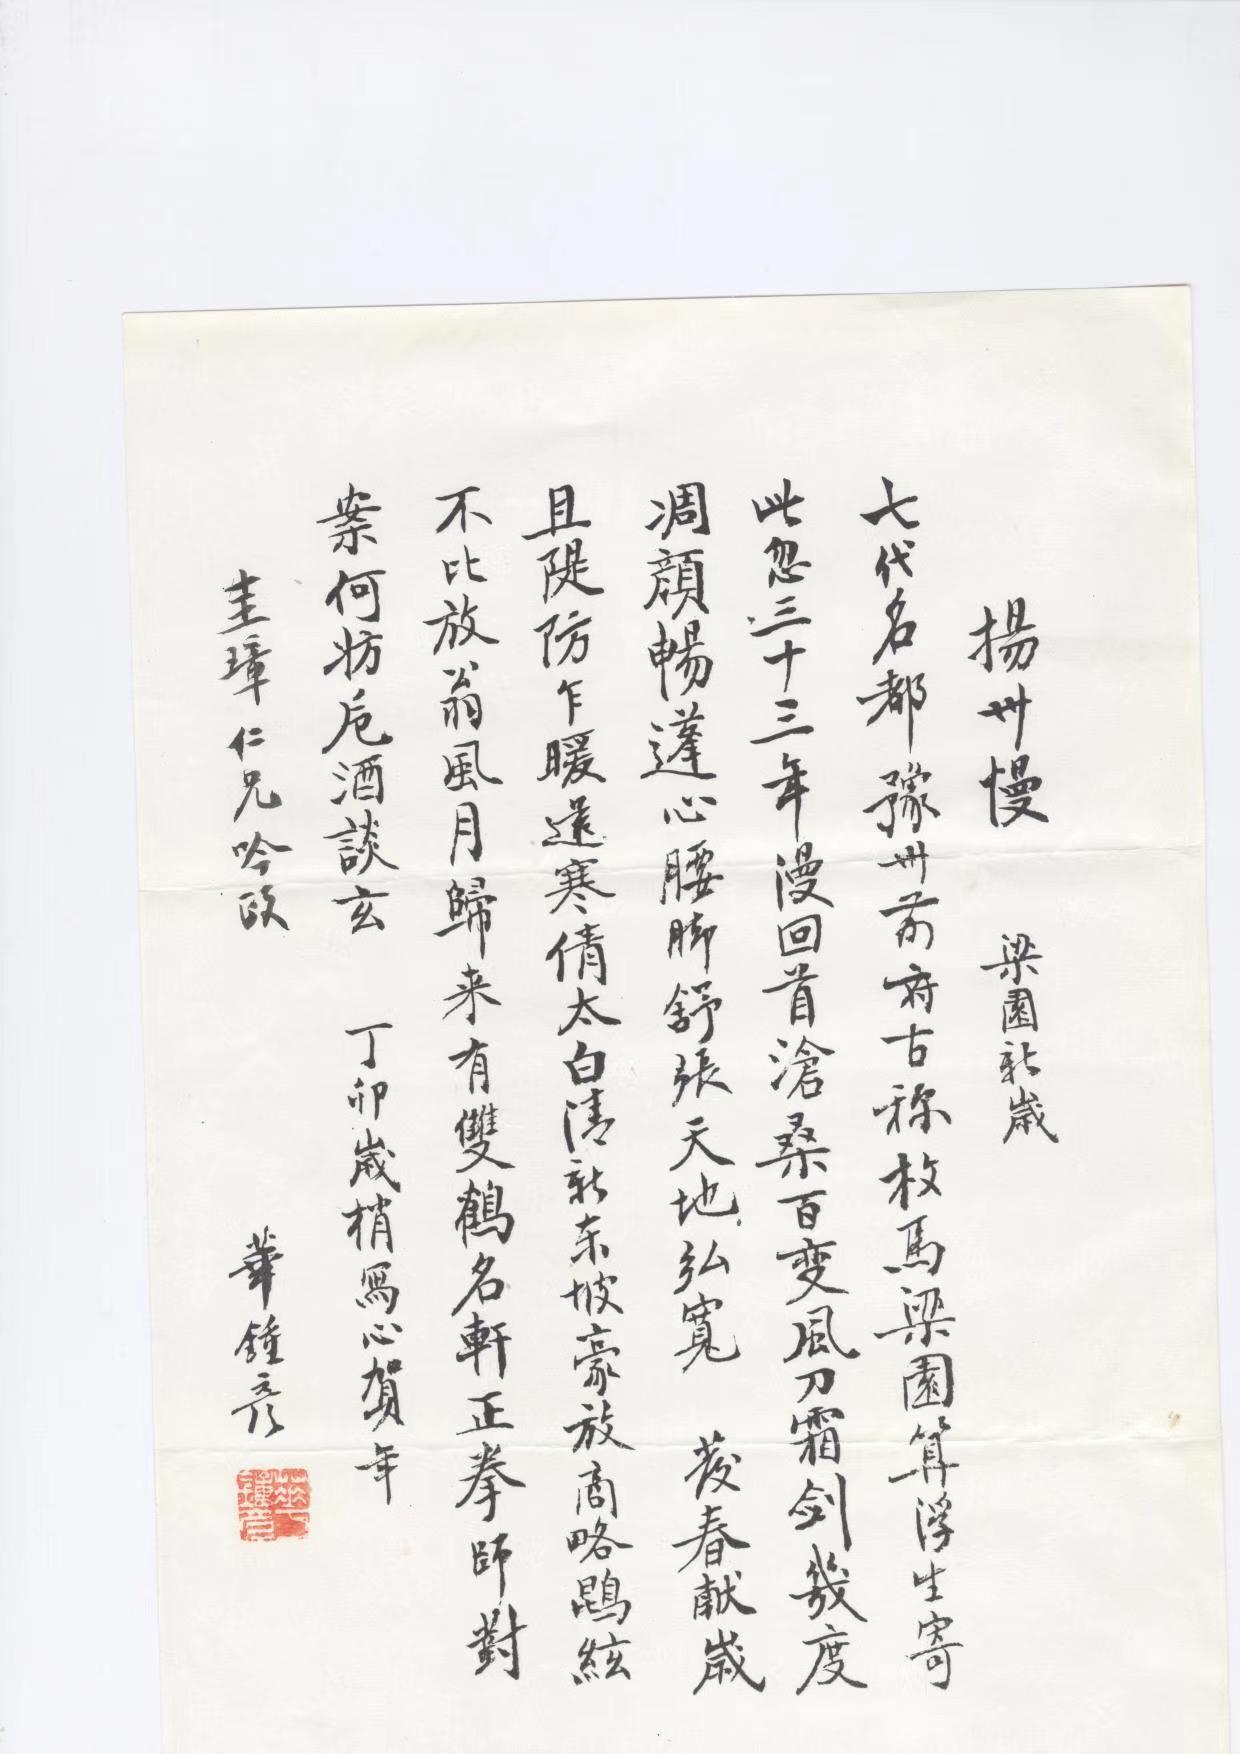 揚州慢 梁園新歲
七代名都豫州前府古称枚馬梁園算浮生寄
此忽三十三年漫回首滄桑百变風刀霜剑幾度
凋顔暢蓬心腰脚舒張天地弘寬 發春献歲
且隄防乍暖還寒倩太白清新东坡豪放商略鵾絃
不比放翁風月歸来有雙鶴名軒正拳師對
案何妨卮酒談玄 丁卯歲梢写心贺年
圭璋仁兄吟政 華鍾彦
華鍾彦